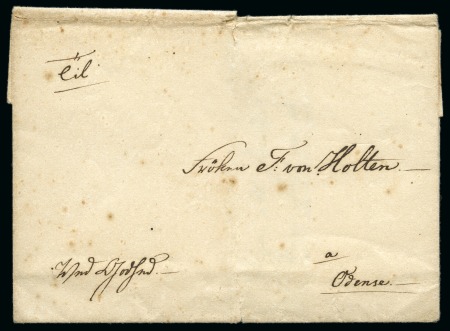 Til
Fröken F: von Holten.
a
Odense.